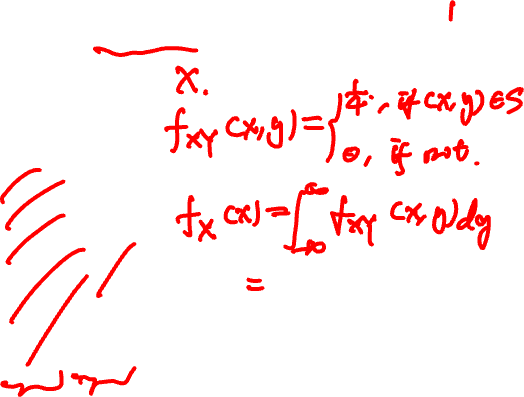 X.
f_{XY}(x,y)={1/4, if (x,y)∈S
0, if not.
f_X(x)=∫_{-∞}^{∞} f_{XY}(x,y)dy
=